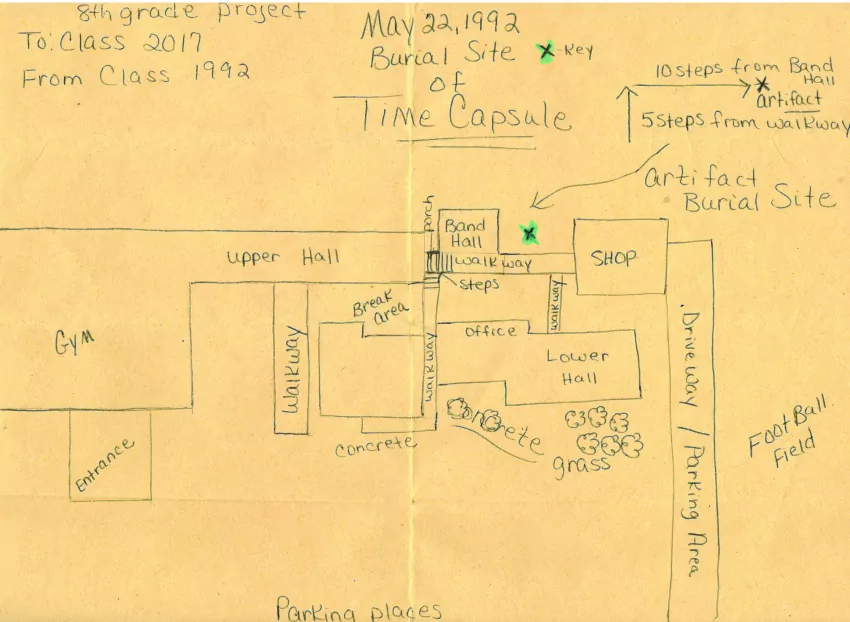 8th grade project
To: Class 2017
From Class 1992
May 22, 1992
Burial Site X-Key
of
Time Capsule
10 steps from Band
Hall
X
artifact
5 steps from walkway
artifact
Burial Site
porch
Band
Hall
X
walkway
SHOP
steps
Upper Hall
Break
area
walkway
Office
Gym
Walkway
walkway
Lower
Hall
Driveway / Parking Area
FootBall
Field
Concrete
Concrete
grass
Entrance
Parking places